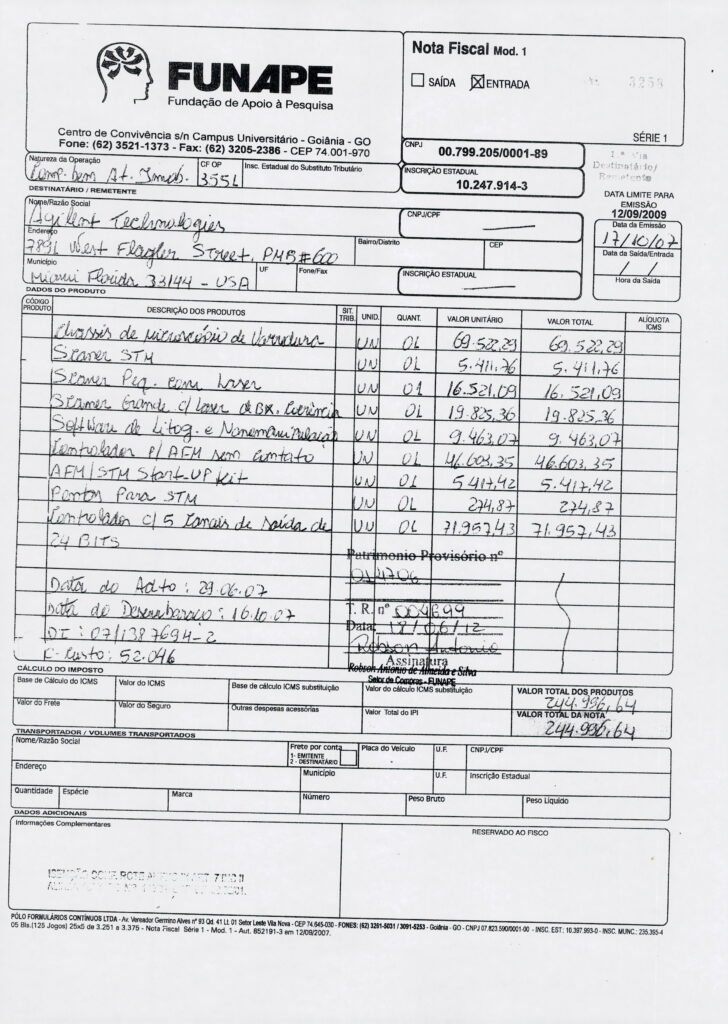 FUNAPE
Fundação de Apoio à Pesquisa
Centro de Convivência s/n Campus Universitário - Goiânia - GO
Fone: (62) 3521-1373 - Fax: (62) 3205-2386 - CEP 74.001-970
Nota Fiscal Mod. 1
SAÍDA ENTRADA
3253
SÉRIE 1
CNPJ
00.799.205/0001-89
INSCRIÇÃO ESTADUAL
10.247.914-3
1ª Via
Destinatário/
Remetente
DATA LIMITE PARA
EMISSÃO
12/09/2009
Natureza da Operação CF OP Insc. Estadual do Substituto Tributário
Comp. bem At. Imob. 3551
DESTINATÁRIO / REMETENTE
Nome/Razão Social CNPJ/CPF Data da Emissão
Agilent Technologies 17/10/07
Endereço Bairro/Distrito CEP Data da Saída/Entrada
7891 West Flagler Street, PMB#600 / /
Município UF Fone/Fax INSCRIÇÃO ESTADUAL Hora da Saída
Miami Florida 33144 - USA
DADOS DO PRODUTO
CÓDIGO PRODUTO DESCRIÇÃO DOS PRODUTOS SIT. TRIB. UNID. QUANT. VALOR UNITÁRIO VALOR TOTAL ALÍQUOTA ICMS
Chassis de Microscópio de Varredura UN 01 69.522,29 69.522,29
Scaner STM UN 01 5.411,76 5.411,76
Scaner Peq. com Laser UN 01 16.521,09 16.521,09
Scanner Grande c/ Laser de BX. Coerência UN 01 19.825,36 19.825,36
Software de Litog. e Nanomanipulação UN 01 9.463,07 9.463,07
Controlador P/ AFM sem contato UN 01 46.603,35 46.603,35
AFM/STM Start-UP Kit UN 01 5.417,42 5.417,42
Pontos Para STM UN 01 274,87 274,87
Controlador c/ 5 Canais de Saída de UN 01 71.957,43 71.957,43
24 BITS
Patrimonio Provisório nº
014706
Data do Adto: 29.06.07
T. R. nº 004699
Data do Desembaraço: 16.10.07
Data: 18/06/12
DI: 07/1387694-2
Robson Antonio
C. Custo: 52.046
Assinatura
Robson Antonio de Almeida e Silva
Setor de Compras - FUNAPE
CÁLCULO DO IMPOSTO
Base de Cálculo do ICMS Valor do ICMS Base de cálculo ICMS substituição Valor do cálculo ICMS substituição VALOR TOTAL DOS PRODUTOS
244.996,64
Valor do Frete Valor do Seguro Outras despesas acessórias Valor Total do IPI VALOR TOTAL DA NOTA
244.996,64
TRANSPORTADOR / VOLUMES TRANSPORTADOS
Nome/Razão Social Frete por conta Placa do Veículo U.F. CNPJ/CPF
1- EMITENTE
2 - DESTINATÁRIO
Endereço Município U.F. Inscrição Estadual
Quantidade Espécie Marca Número Peso Bruto Peso Líquido
DADOS ADICIONAIS
Informações Complementares RESERVADO AO FISCO
PÓLO FORMULÁRIOS CONTÍNUOS LTDA - Av. Vereador Germino Alves nº 93 Qd. 41 Lt. 01 Setor Leste Vila Nova - CEP 74.645-030 - FONES: (62) 3261-5031 / 3091-5253 - Goiânia - GO - CNPJ 07.823.590/0001-00 - INSC. EST: 10.397.993-0 - INSC. MUNC.: 235.395-4
05 Bls.(125 Jogos) 25x5 de 3.251 a 3.375 - Nota Fiscal Série 1 - Mod. 1 - Aut. 852191-3 em 12/09/2007.